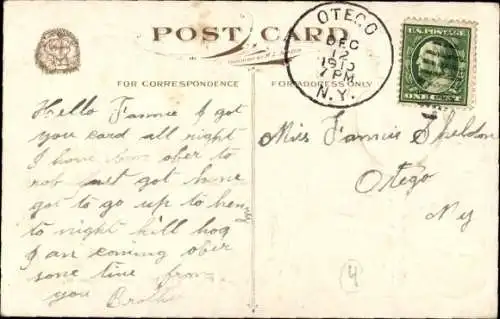 POST CARD
FOR CORRESPONDENCE
FOR ADDRESS ONLY
OTEGO
DEC
12
1910
7 PM
N.Y.
U.S. POSTAGE
Hello Fannie I got
you card all night
I have ober to
rob just got home
got to go up to hen
to night kill hog
I an coming ober
some time from
you Brother
Miss Fannie Sheldon
Otego
Ny
4